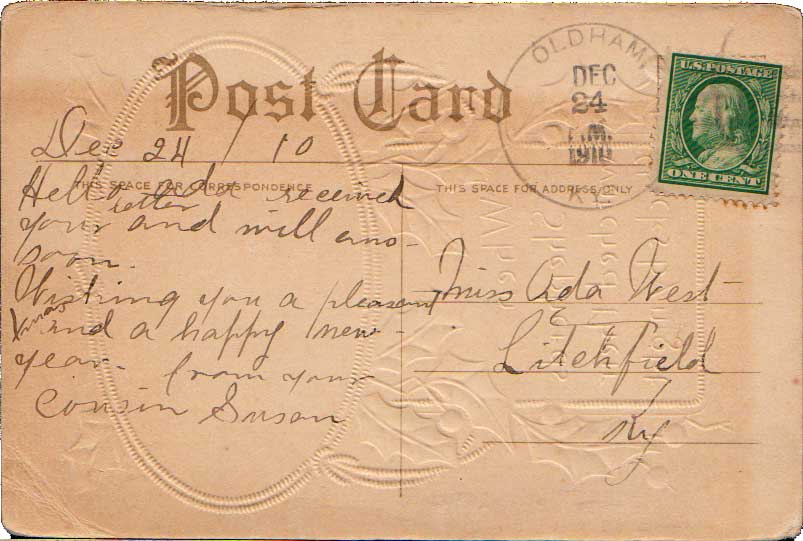 Post Card
OLDHAM,
DEC
24
1910
KY.
U.S. POSTAGE
ONE CENT
Dec 24 / 10
THIS SPACE FOR CORRESPONDENCE
THIS SPACE FOR ADDRESS ONLY
Hello Ada received
your letter and will ans-
soon.
Wishing you a pleasant
Xmas and a happy new-
year. from your
cousin Susan
Miss Ada West
Litchfield
Ky